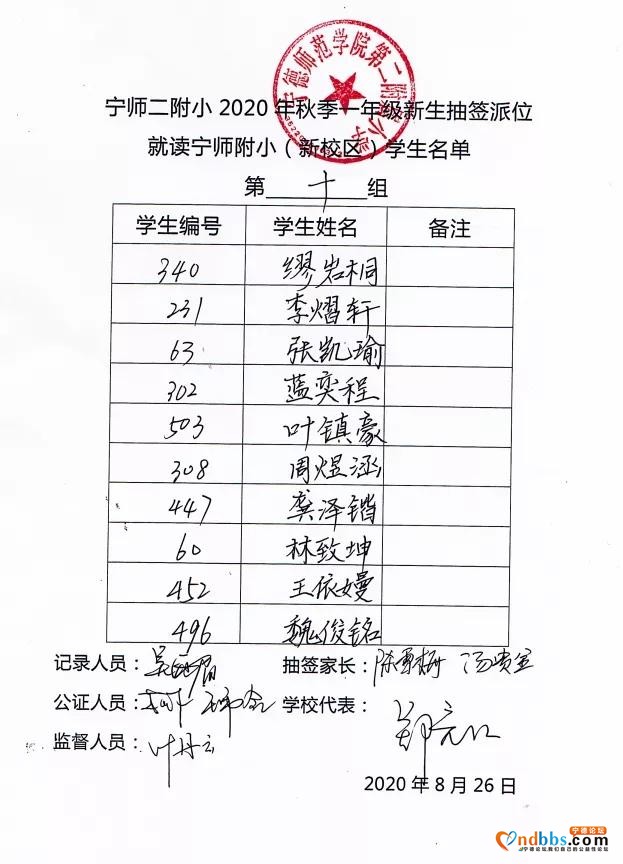 宁德师范学院第二附属小学
宁师二附小 2020 年秋季一年级新生抽签派位
就读宁师附小（新校区）学生名单
第 十 组
学生编号 学生姓名 备注
340 缪岩桐
231 李熠轩
63 张凯瑜
302 蓝奕程
503 叶镇豪
308 周煜涵
447 龚泽锴
60 林致坤
452 王依嫚
496 魏俊铭
记录人员： 抽签家长：
公证人员： 学校代表：
监督人员：叶丹云
2020 年 8 月 26 日
宁德论坛
ndbbs.com